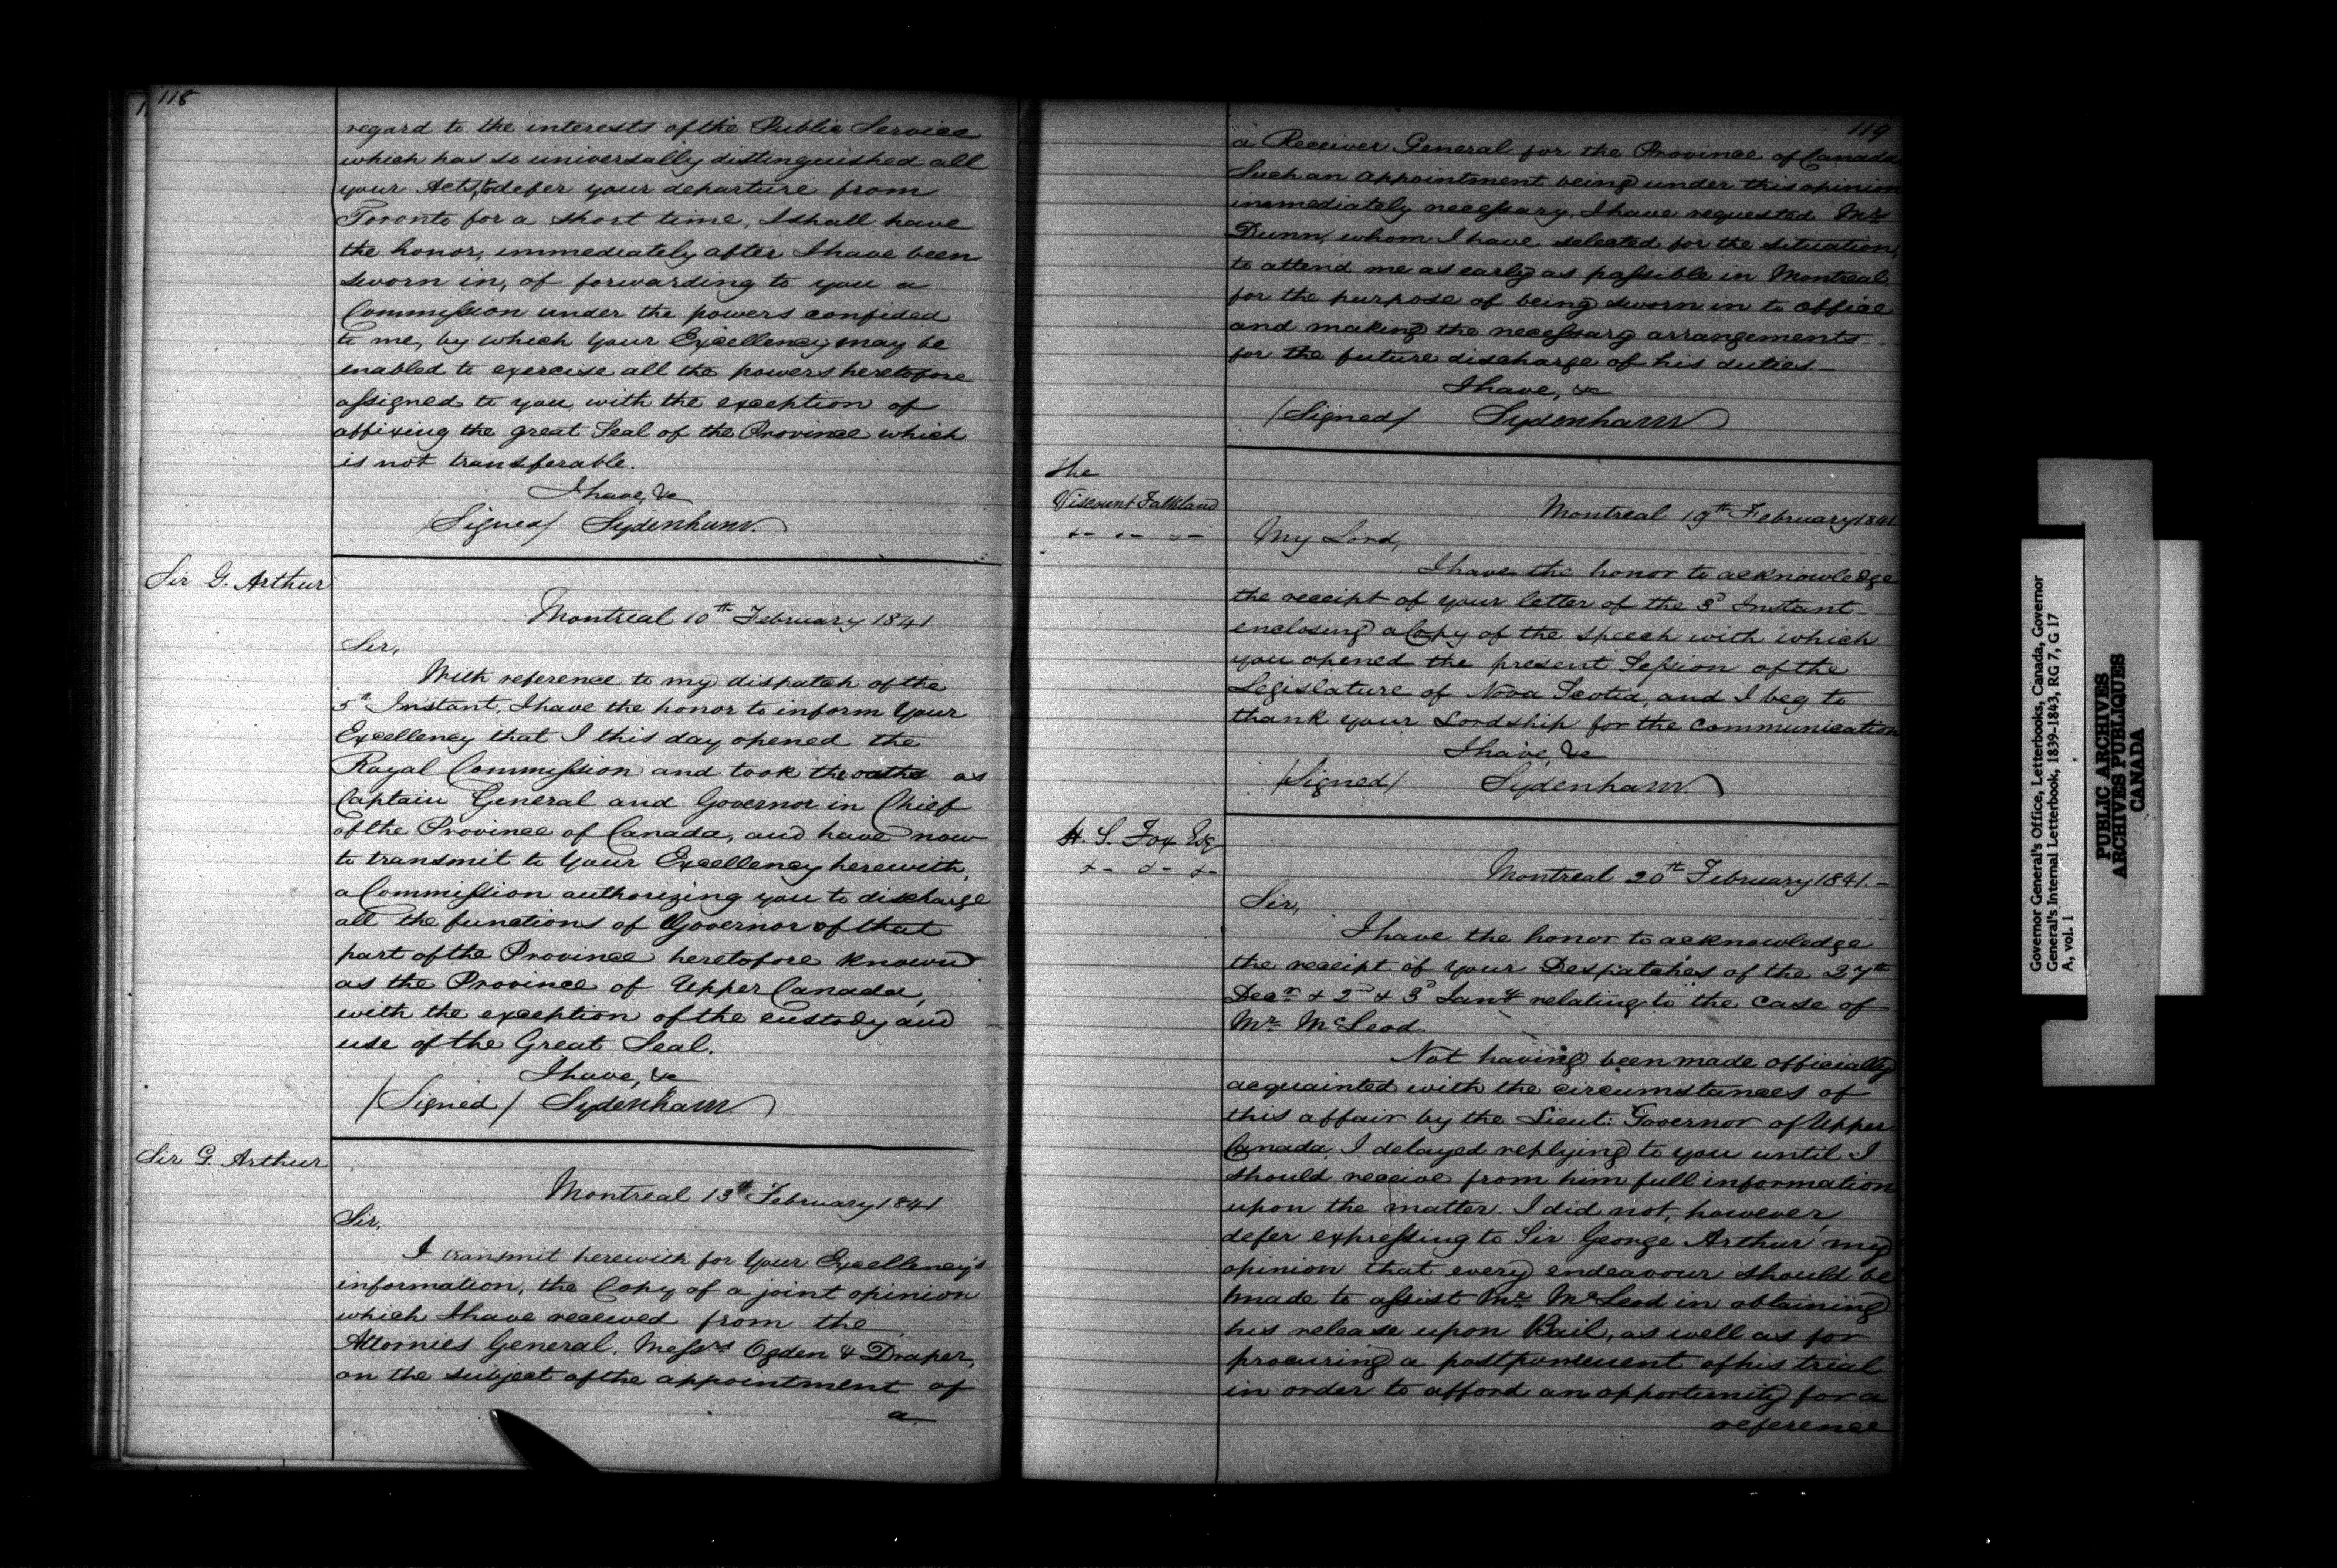 118
regard to the interests of the Public Service
which has so universally distinguished all
your Acts, to defer your departure from
Toronto for a short time, I shall have
the honor, immediately after I have been
sworn in, of forwarding to you a
Commission under the powers confided
to me, by which Your Excellency may be
enabled to exercise all the powers heretofore
assigned to you, with the exception of
affixing the great Seal of the Province which
is not transferable.
I have, &c
/Signed/ Sydenham
Sir G. Arthur
Montreal 10th February 1841
Sir,
With reference to my dispatch of the
5th Instant, I have the honor to inform Your
Excellency that I this day opened the
Royal Commission and took the oaths as
Captain General and Governor in Chief
of the Province of Canada, and have now
to transmit to Your Excellency herewith,
a Commission authorizing you to discharge
all the functions of Governor of that
part of the Province heretofore known
as the Province of Upper Canada,
with the exception of the custody and
use of the Great Seal.
I have, &c
/Signed/ Sydenham
Sir G. Arthur
Montreal 13th February 1841
Sir,
I transmit herewith for Your Excellency's
information, the Copy of a joint opinion
which I have received from the
Attornies General, Messrs Ogden & Draper,
on the subject of the appointment of
a
119
a Receiver General for the Province of Canada
Such an appointment being under this opinion
immediately necessary, I have requested Mr
Dunn, whom I have selected for the situation,
to attend me as early as possible in Montreal
for the purpose of being sworn in to office
and making the necessary arrangements
for the future discharge of his duties—
I have, &c
/Signed/ Sydenham
The
Viscount Falkland
&- &- &-
Montreal 19th February 1841
My Lord,
I have the honor to acknowledge
the receipt of your letter of the 3d Instant
enclosing a Copy of the speech with which
you opened the present Session of the
Legislature of Nova Scotia, and I beg to
thank your Lordship for the communication
I have, &c
/Signed/ Sydenham
H. S. Fox Esq
&- &- &-
Montreal 20th February 1841.-
Sir,
I have the honor to acknowledge
the receipt of your Despatches of the 27th
Decr & 2nd & 3d Jany relating to the case of
Mr McLeod.
Not having been made officially
acquainted with the circumstances of
this affair by the Lieut: Governor of Upper
Canada, I delayed replying to you until I
should receive from him full information
upon the matter. I did not, however,
defer expressing to Sir George Arthur my
opinion that every endeavour should be
made to assist Mr McLeod in obtaining
his release upon Bail, as well as for
procuring a postponement of his trial
in order to afford an opportunity for a
reference
Governor General's Office, Letterbooks, Canada, Governor
General's Internal Letterbook, 1839-1843, RG 7, G 17
A, vol. 1
PUBLIC ARCHIVES
ARCHIVES PUBLIQUES
CANADA